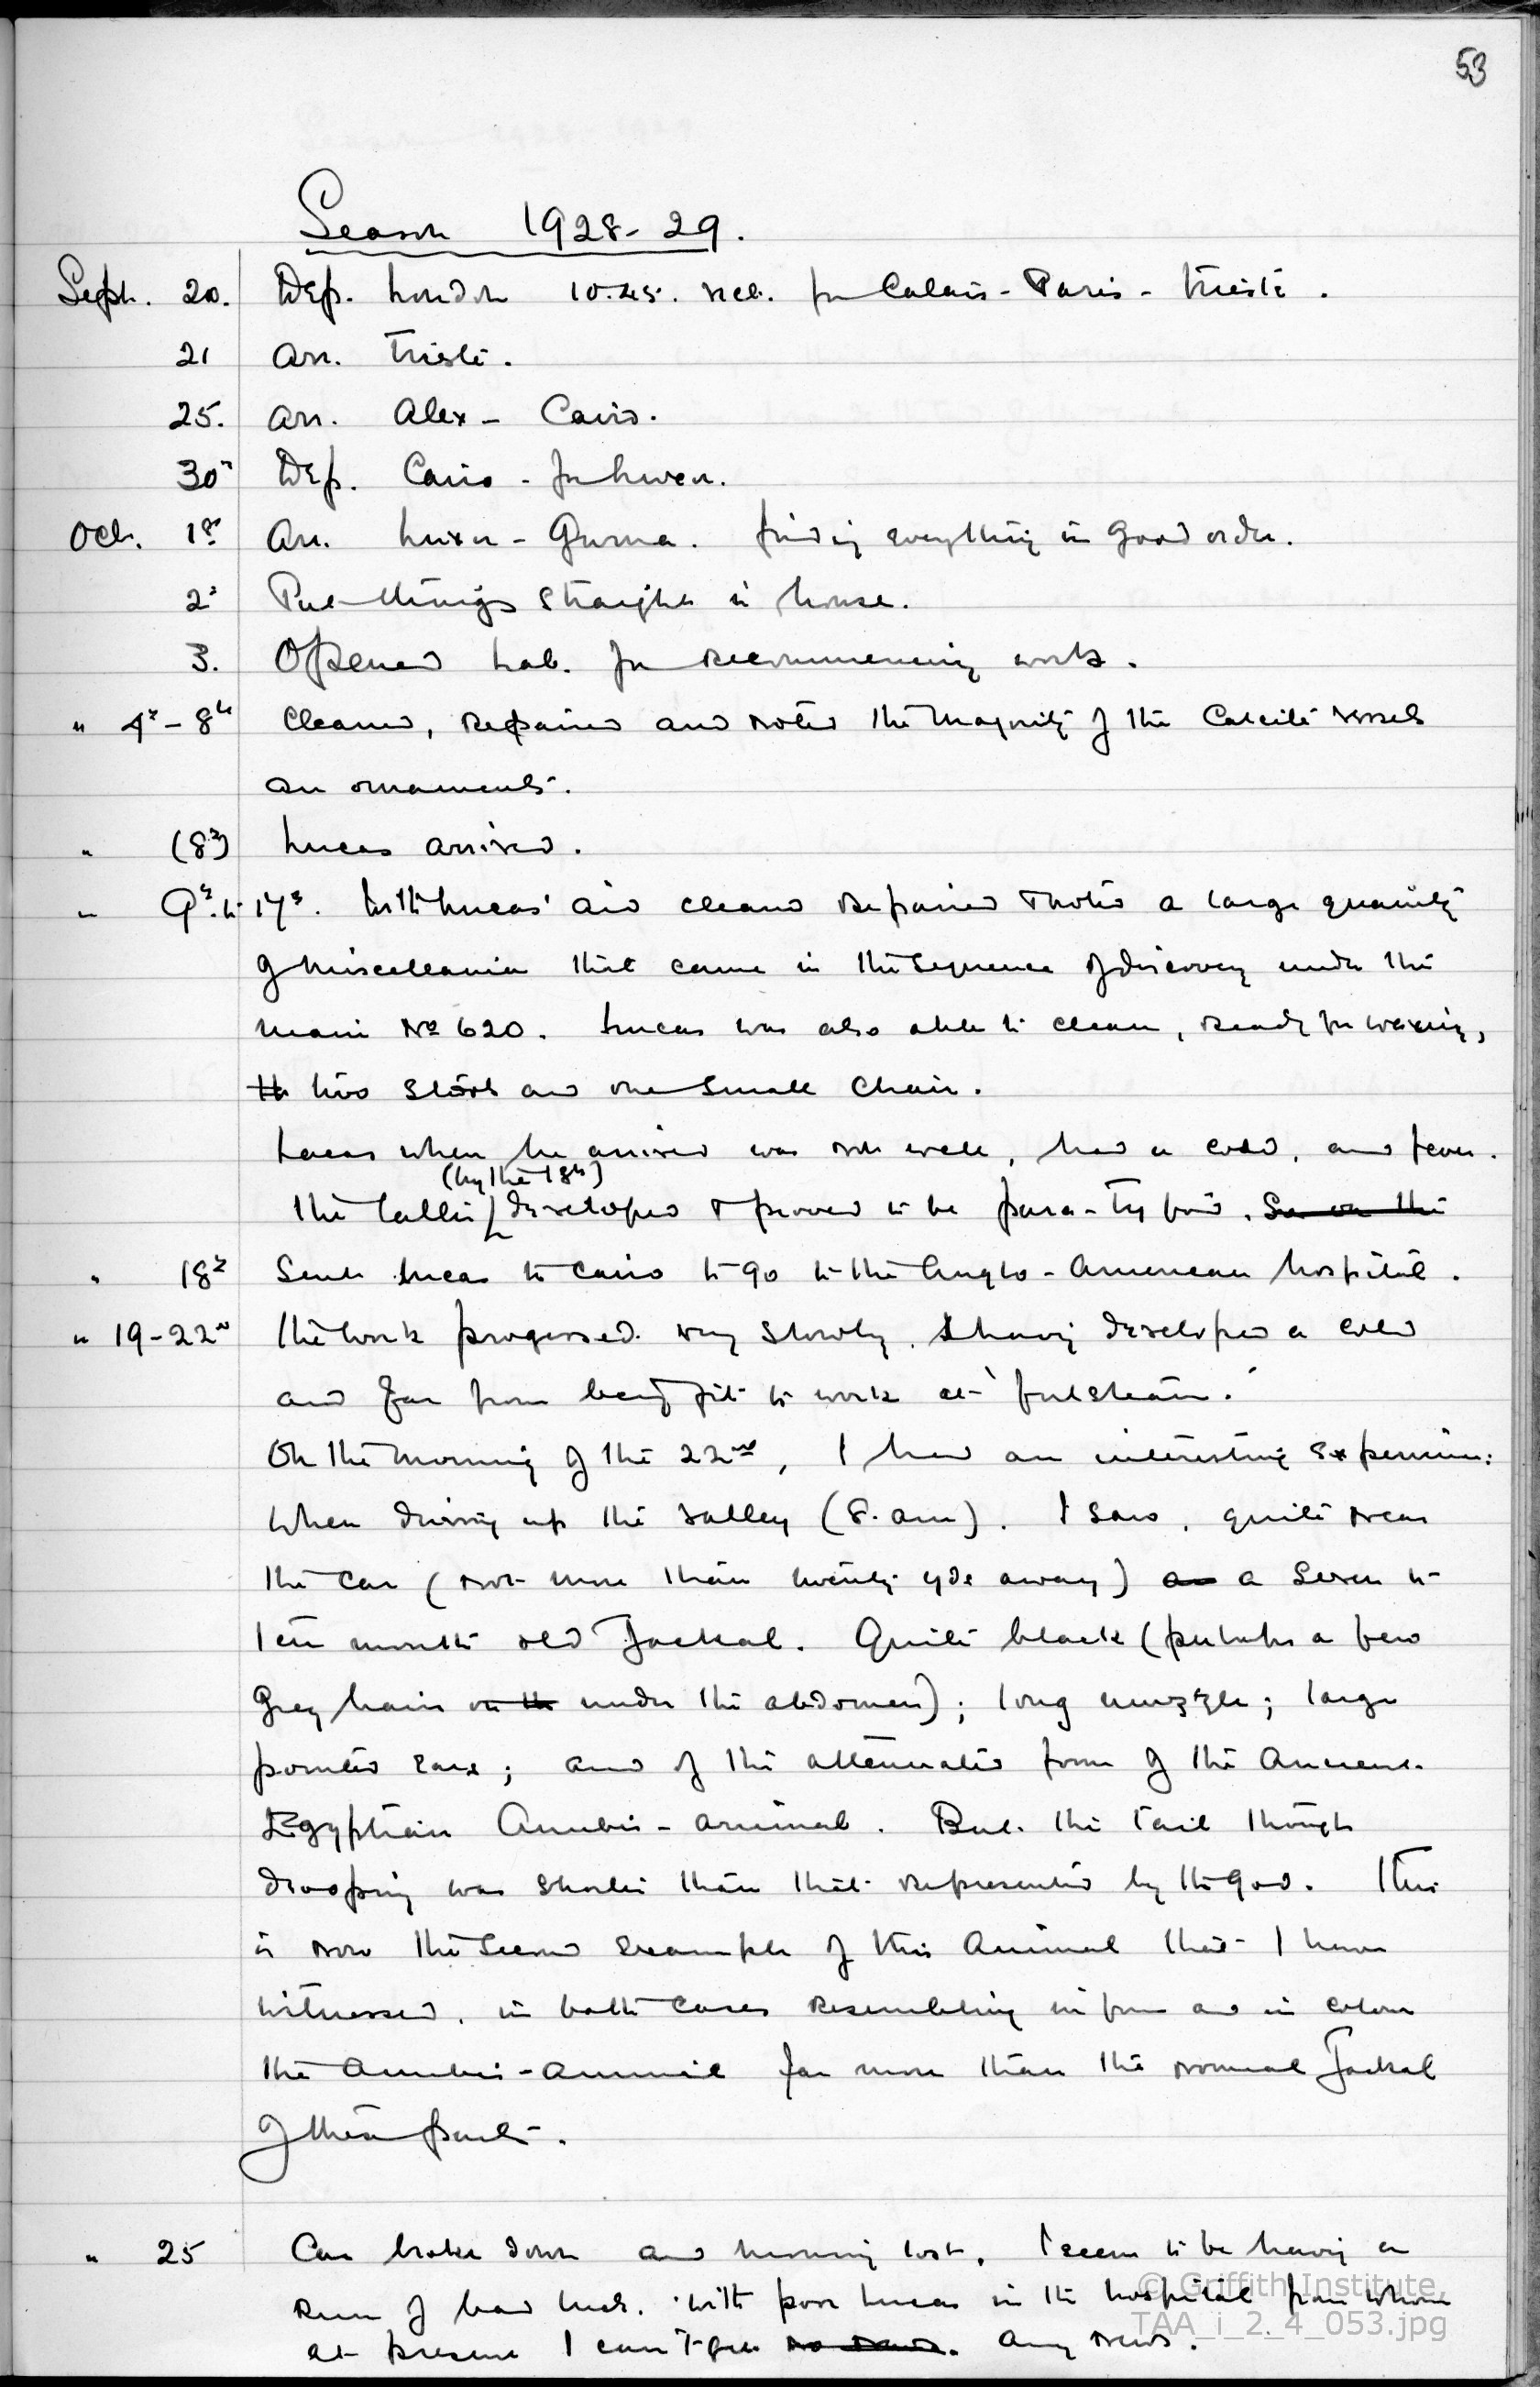 53
Season 1928-29.
Sept. 20. Dep. London 10.45. Vict. for Calais - Paris - Trieste.
21 Arr. Trieste.
25. Arr. Alex - Cairo.
30th Dep. Cairo - for Luxor.
Oct. 1st Arr. Luxor - Gurna. finding everything in good order.
2d Put things straight in house.
3. Opened Lab. for recommencing work.
" 4th - 8th Cleaned, repaired and noted the majority of the Calcite vessels
an ornaments.
" (8th) Lucas arrived.
" 9th to 17th. With Lucas' aid cleaned repaired & noted a large quantity
of miscellania that came in the sequence of discovery under the
main No 620. Lucas was also able to clean, ready for waxing,
th two stools and one small chair.
Lucas when he arrived was not well, had a cold, and fever.
(by the 18th)
The latter developed & proved to be para-typhoid. So on the
" 18th Sent Lucas to Cairo to go to the Anglo-American hospital.
" 19-22nd The work progressed very slowly. I having developed a cold
and far from being fit to work at 'full steam.'
On the morning of the 22nd, I had an interesting experience:
When driving up the valley (8. am). I saw, quite near
the car (not more than twenty yds away) an a seven to
ten months old Jackal. Quite black (perhaps a few
grey hairs on the under the abdomen); long muzzle; large
pointed ears; and of the attenuated form of the Ancient
Egyptian Anubis-animal. But the tail though
drooping was shorter than that represented by the god. This
is now the second example of this animal that I have
witnessed, in both cases resembling in form and in colour
the Anubis-animal far more than the normal Jackal
of these parts.
" 25 Car broke down and morning lost. I seem to be having a
run of bad luck. With poor Lucas in the hospital from whom
at present I can't get no news. any news.
© Griffith Institute,
TAA_i_2_4_053.jpg